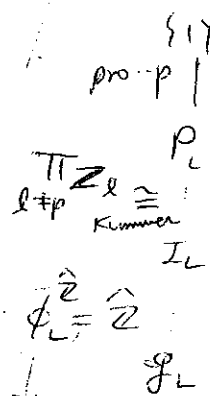 {1}
pro-p |
P_L
∏_{l≠p} Z_l ≅ Kummer
I_L
φ_L^{\hat{Z}} = \hat{Z}
g_L